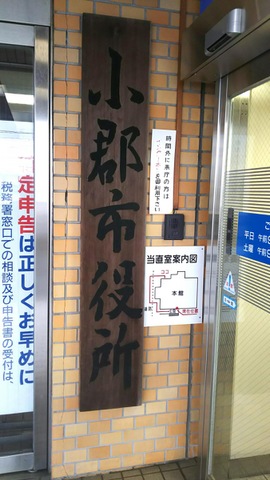 小郡市役所
定申告は正しくお早めに
税務署窓口での相談及び申告書の受付は、
時間外に来庁の方は
を御利用下さい
当直室案内図
ココ
本館
平日 午前
土曜 午前